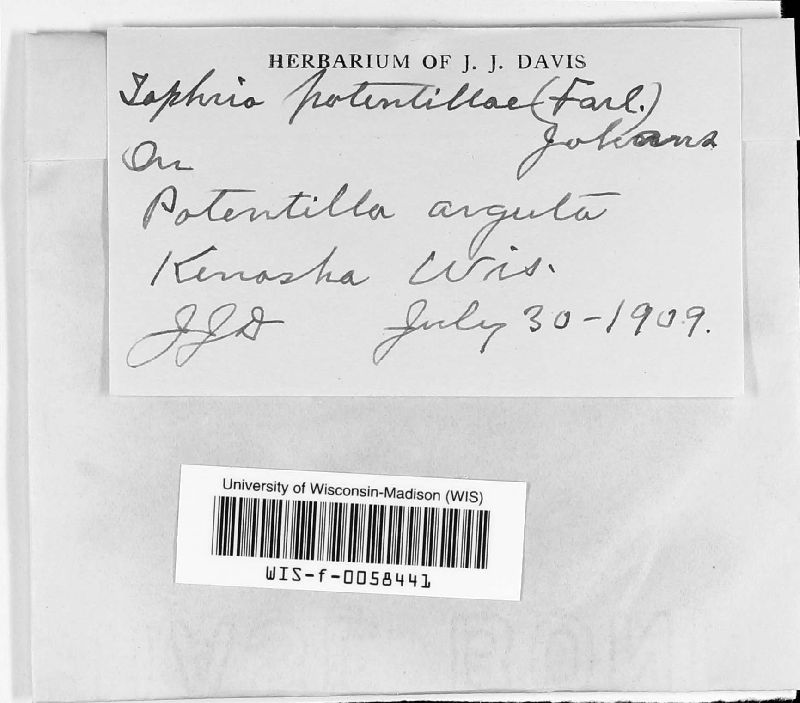 HERBARIUM OF J. J. DAVIS
Taphria potentillae (Farl.)
Johans
On
Potentilla arguta
Kenosha Wis.
JJD July 30-1909.
University of Wisconsin-Madison (WIS)
WIS-f-0058441